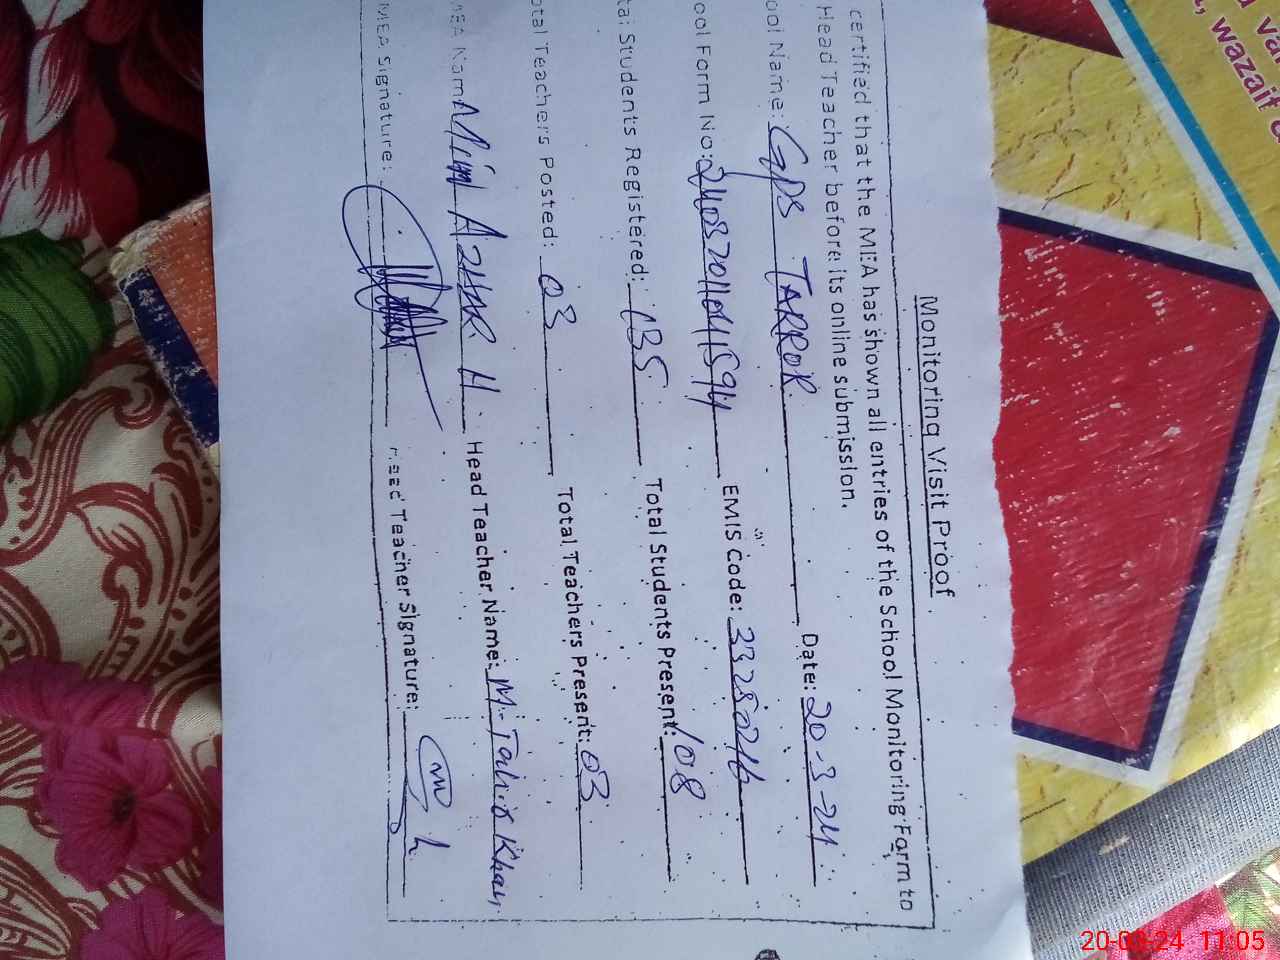 Monitoring Visit Proof
certified that the MEA has shown all entries of the School Monitoring Form to
Head Teacher before its online submission.
ool Name: GPS TARROR Date: 20-3-24
ool Form No: EMIS Code:
tal Students Registered: 135 Total Students Present: 108
otal Teachers Posted: 03 Total Teachers Present: 03
MEA Name AZHAR H Head Teacher Name: M. Tahir Khan
MEA Signature: Head Teacher Signature:
, wazaif
20-03-24 11:05